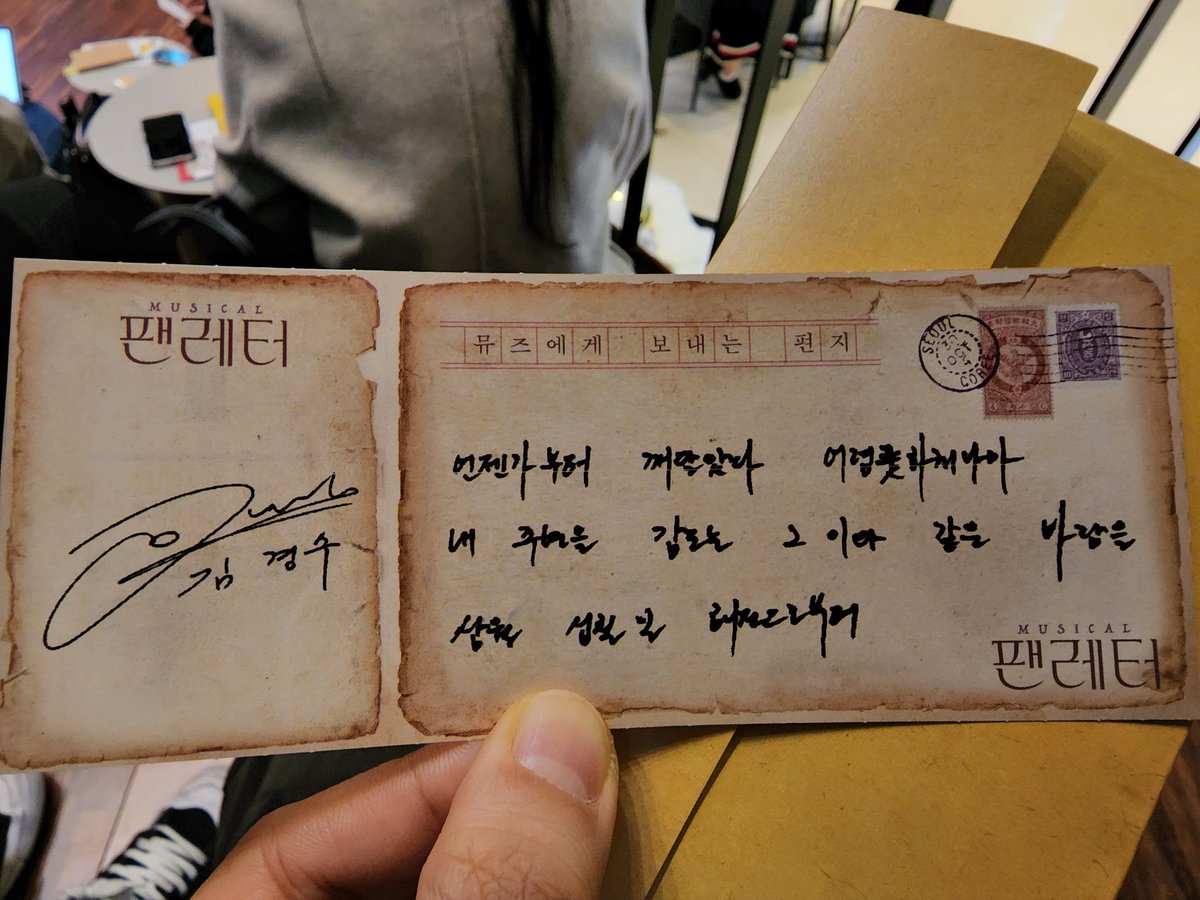 MUSICAL
팬레터
김 경수
뮤즈에게 보내는 편지
SEOUL
COREE
언젠가부터 깨달았다 어렴풋하게나마
내 주변을 감도는 그 이와 같은 바람을
삼월 십칠일
MUSICAL
팬레터